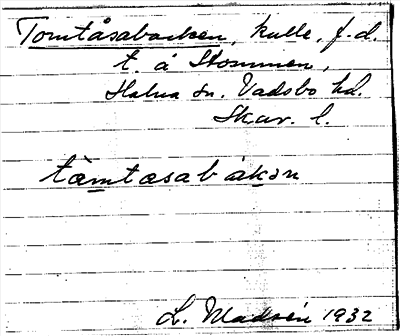 Tomtåsabacken, kulle, f.d.
t. å Stommen,
Halna sn. Vadsbo hd.
Skar. l.
tæ̀mtæsabákən
L. Madsén 1932